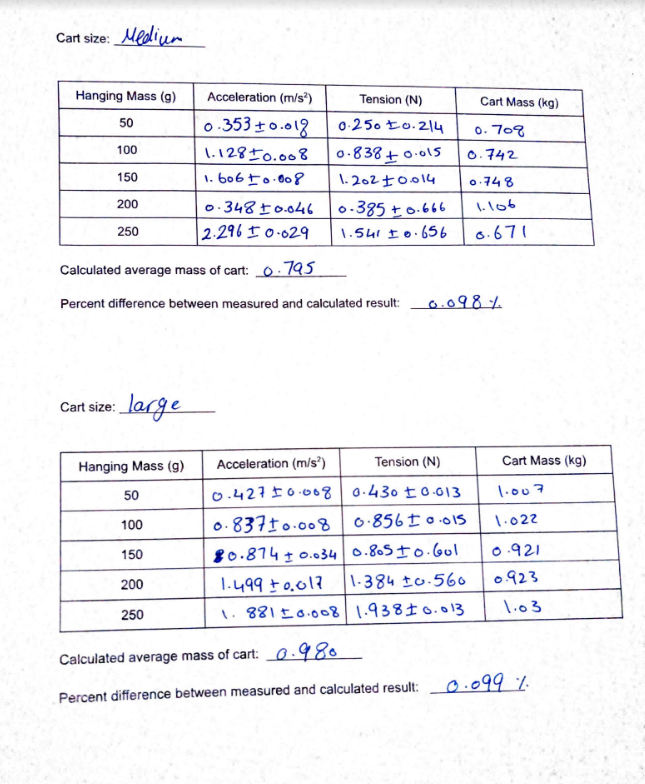 Cart size: Medium
Hanging Mass (g) Acceleration (m/s²) Tension (N) Cart Mass (kg)
50 0.353±0.018 0.250±0.214 0.708
100 1.128±0.008 0.838±0.015 0.742
150 1.606±0.008 1.202±0.014 0.748
200 0.348±0.046 0.385±0.666 1.106
250 2.296±0.029 1.541±0.656 0.671
Calculated average mass of cart: 0.795
Percent difference between measured and calculated result: 0.098 %
Cart size: large
Hanging Mass (g) Acceleration (m/s²) Tension (N) Cart Mass (kg)
50 0.427±0.008 0.430±0.013 1.007
100 0.837±0.008 0.856±0.015 1.022
150 0.874±0.034 0.805±0.601 0.921
200 1.499±0.017 1.384±0.560 0.923
250 1.881±0.008 1.938±0.013 1.03
Calculated average mass of cart: 0.980
Percent difference between measured and calculated result: 0.099 %